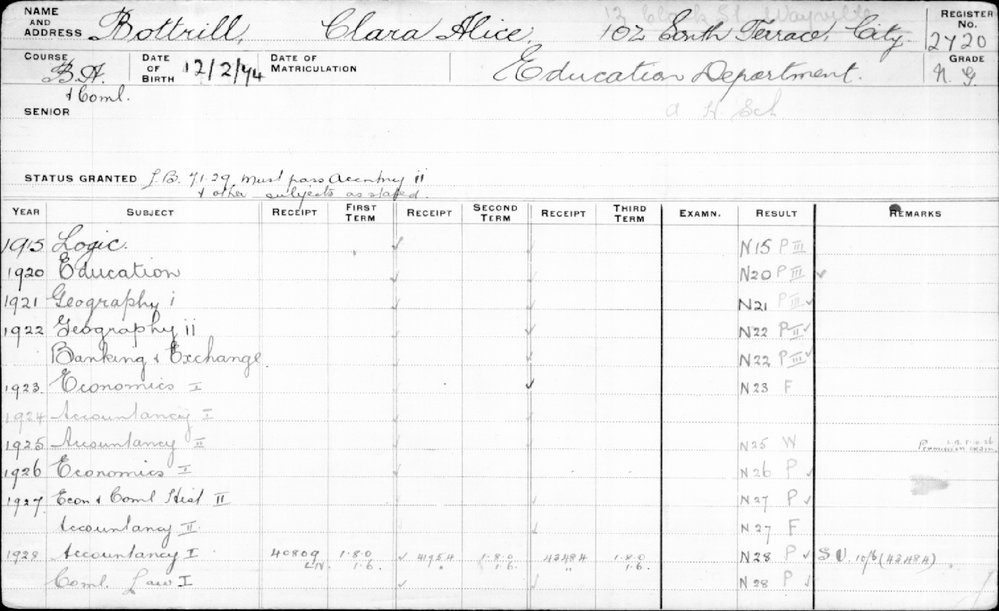 NAME AND ADDRESS Bottrill, Clara Alice, 102 South Terrace, City. REGISTER No. 2420
13 Clark St. Wayville
COURSE B.A. & Coml. DATE OF BIRTH 12/2/74 DATE OF MATRICULATION Education Department. GRADE N. G.
SENIOR
STATUS GRANTED 7.1.29 Must pass Accntncy ii
& other subjects as stated.
YEAR SUBJECT RECEIPT FIRST TERM RECEIPT SECOND TERM RECEIPT THIRD TERM EXAMN. RESULT REMARKS
1915 Logic. ✓ ✓ N15 P III
1920 Education ✓ ✓ N20 P III ✓
1921 Geography i ✓ ✓ N21 P III ✓
1922 Geography ii ✓ ✓ N22 P II ✓
Banking & Exchange ✓ N22 P III ✓
1923 Economics I ✓ N23 F
1924 Accountancy I ✓
1925 Accountancy II ✓ N25 W
1926 Economics I ✓ N26 P ✓
1927 Econ & Coml Hist II ✓ N27 P ✓
Accountancy II ✓ N27 F
1928 Accountancy I 40809 1.8.0 ✓ 41954 1.8.0 43484 1.8.0 N28 P ✓ S.V. 10/6 (43484)
LN. 1.6. " 1.6. " 1.6.
Coml. Law I ✓ ✓ N28 P ✓